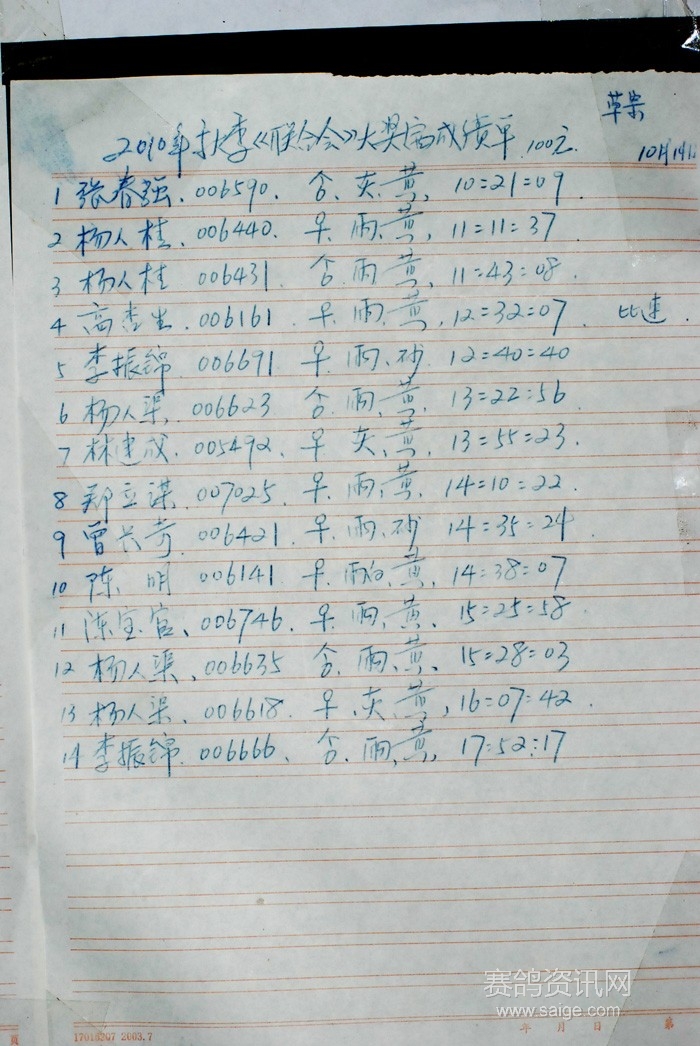 草案
2010年秋季《联合会》大奖赛成绩单.100元. 10月19日
1 张春强.006590. 合.灰.黄, 10=21=09.
2 杨人桂.006440. 早.雨.黄, 11=11=37.
3 杨人桂 006431 合.雨.黄, 11=43=08.
4 高杏生.006161 早.雨.黄, 12=32=07. 比速.
5 李振锦.006691 早.雨.砂 12=40=40
6 杨人渠.006623 合.雨.黄. 13=22=56
7 林建成.005492. 早 灰.黄. 13=55=23.
8 郑立谋.007025. 早.雨.黄. 14=10=22.
9 曾长奇.006421 早.雨.砂 14=35=24.
10 陈 明 006141 早.雨白.黄, 14=38=07
11 陈宝官.006746. 早.雨.黄. 15=25=58
12 杨人渠.006635 合.雨.黄. 15=28=03
13 杨人渠.006618. 早.灰.黄, 16=07=42.
14 李振锦.006666. 合.雨.黄, 17:52:17
赛鸽资讯网
www.saige.com
頁 17016207 2003.7 年 月 日 第